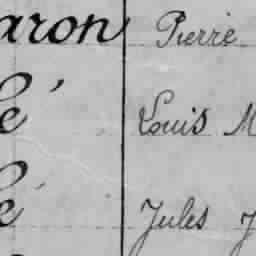 aron Pierre
é Louis M
é Jules J